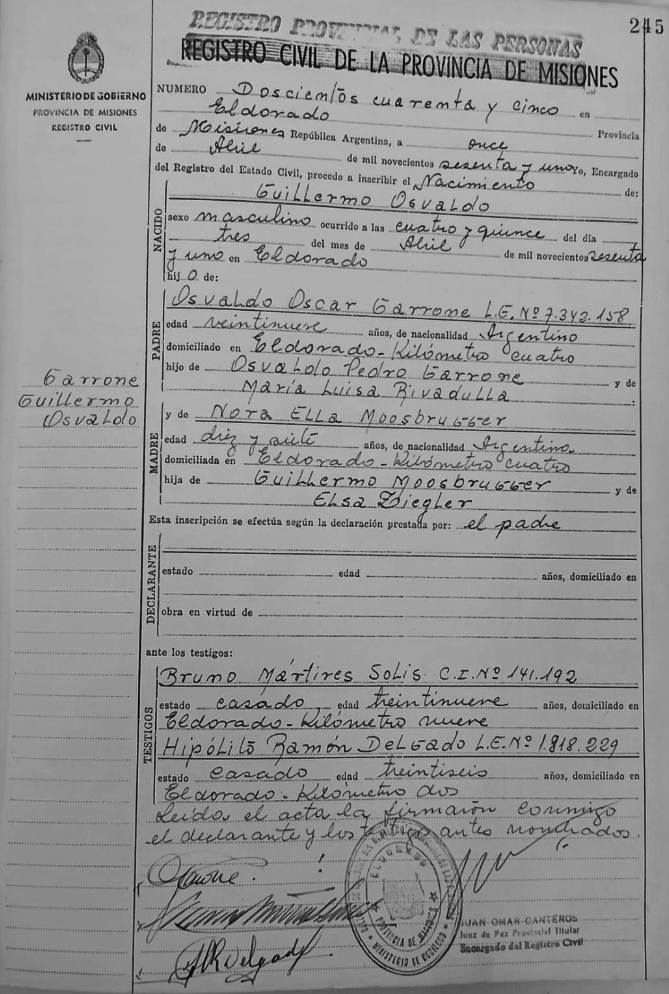 245
REGISTRO PROVINCIAL DE LAS PERSONAS
REGISTRO CIVIL DE LA PROVINCIA DE MISIONES
MINISTERIO DE GOBIERNO
PROVINCIA DE MISIONES
REGISTRO CIVIL
NUMERO Doscientos cuarenta y cinco en
Eldorado Provincia
de Misiones República Argentina, a once
de Abril de mil novecientos sesenta y uno Yo, Encargado
del Registro del Estado Civil, procedo a inscribir el Nacimiento de:
NACIDO
Guillermo Osvaldo
sexo masculino ocurrido a las cuatro y quince del día
tres del mes de Abril de mil novecientos sesenta
y uno en Eldorado
hij o de:
PADRE
Osvaldo Oscar Garrone L.E. Nº 7.342.158
edad veintinueve años, de nacionalidad Argentino
domiciliado en Eldorado-Kilómetro cuatro
hijo de Osvaldo Pedro Garrone y de
María Luisa Rivadulla :
Garrone
Guillermo
Osvaldo
MADRE
y de Nora Ella Moosbrugger
edad diez y siete años, de nacionalidad Argentina
domiciliada en Eldorado-Kilómetro cuatro
hija de Guillermo Moosbrugger y de
Elsa Ziegler
Esta inscripción se efectúa según la declaración prestada por: el padre
DECLARANTE
estado edad años, domiciliado en
obra en virtud de
ante los testigos:
TESTIGOS
Bruno Mártires Solis C.I. Nº 141.192
estado casado edad treintinueve años, domiciliado en
Eldorado-Kilómetro nueve
Hipólito Ramón Delgado L.E. Nº 1.818.229
estado casado edad treintiseis años, domiciliado en
Eldorado-Kilómetro dos
Leída el acta la firmaron conmigo
el declarante y los antes nombrados.
ELDORADO
PROVINCIA DE MISIONES
MINISTERIO DE GOBIERNO
JUAN OMAR CANTEROS
Juez de Paz Provincial Titular
Encargado del Registro Civil